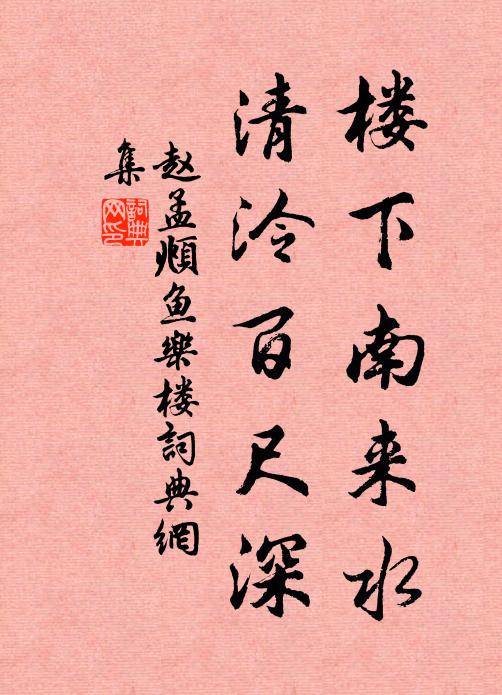 楼下南来水
清泠百尺深
赵孟頫鱼樂楼詞典網
集
詞典
网印